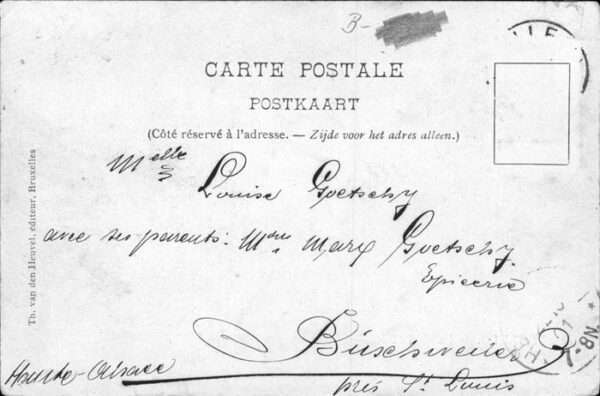 B-
CARTE POSTALE
POSTKAART
(Côté réservé à l'adresse. — Zijde voor het adres alleen.)
Melle
Louise Goetschy
avec ses parents: Mme Marx Goetschy.
Epicerie
Buschweiler
Haute-Alsace
près St Louis
Th. van den Heuvel, éditeur, Bruxelles
7-8N.